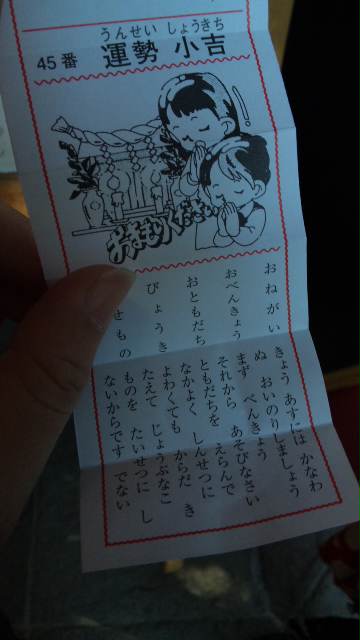 うんせい しょうきち
45番 運勢 小吉
おまもりください
おねがい きょう あすには かなわ
ぬ おいのりしましょう
おべんきょう まず べんきょう
それから あそびなさい
おともだち ともだちを えらんで
なかよく しんせつに
びょうき よわくても からだ き
たえて じょうぶなこ
せもの ものを たいせつに し
ないからです でない